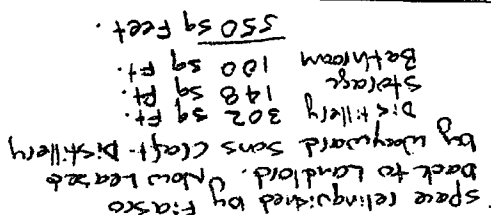 space relinquished by Fiasco
back to Landlord. Now Leased
by Wayward Sons Craft Distillery
Distillery 302 sq Ft.
Storage 148 sq Ft.
Bathroom 100 sq Ft.
550 sq Feet.